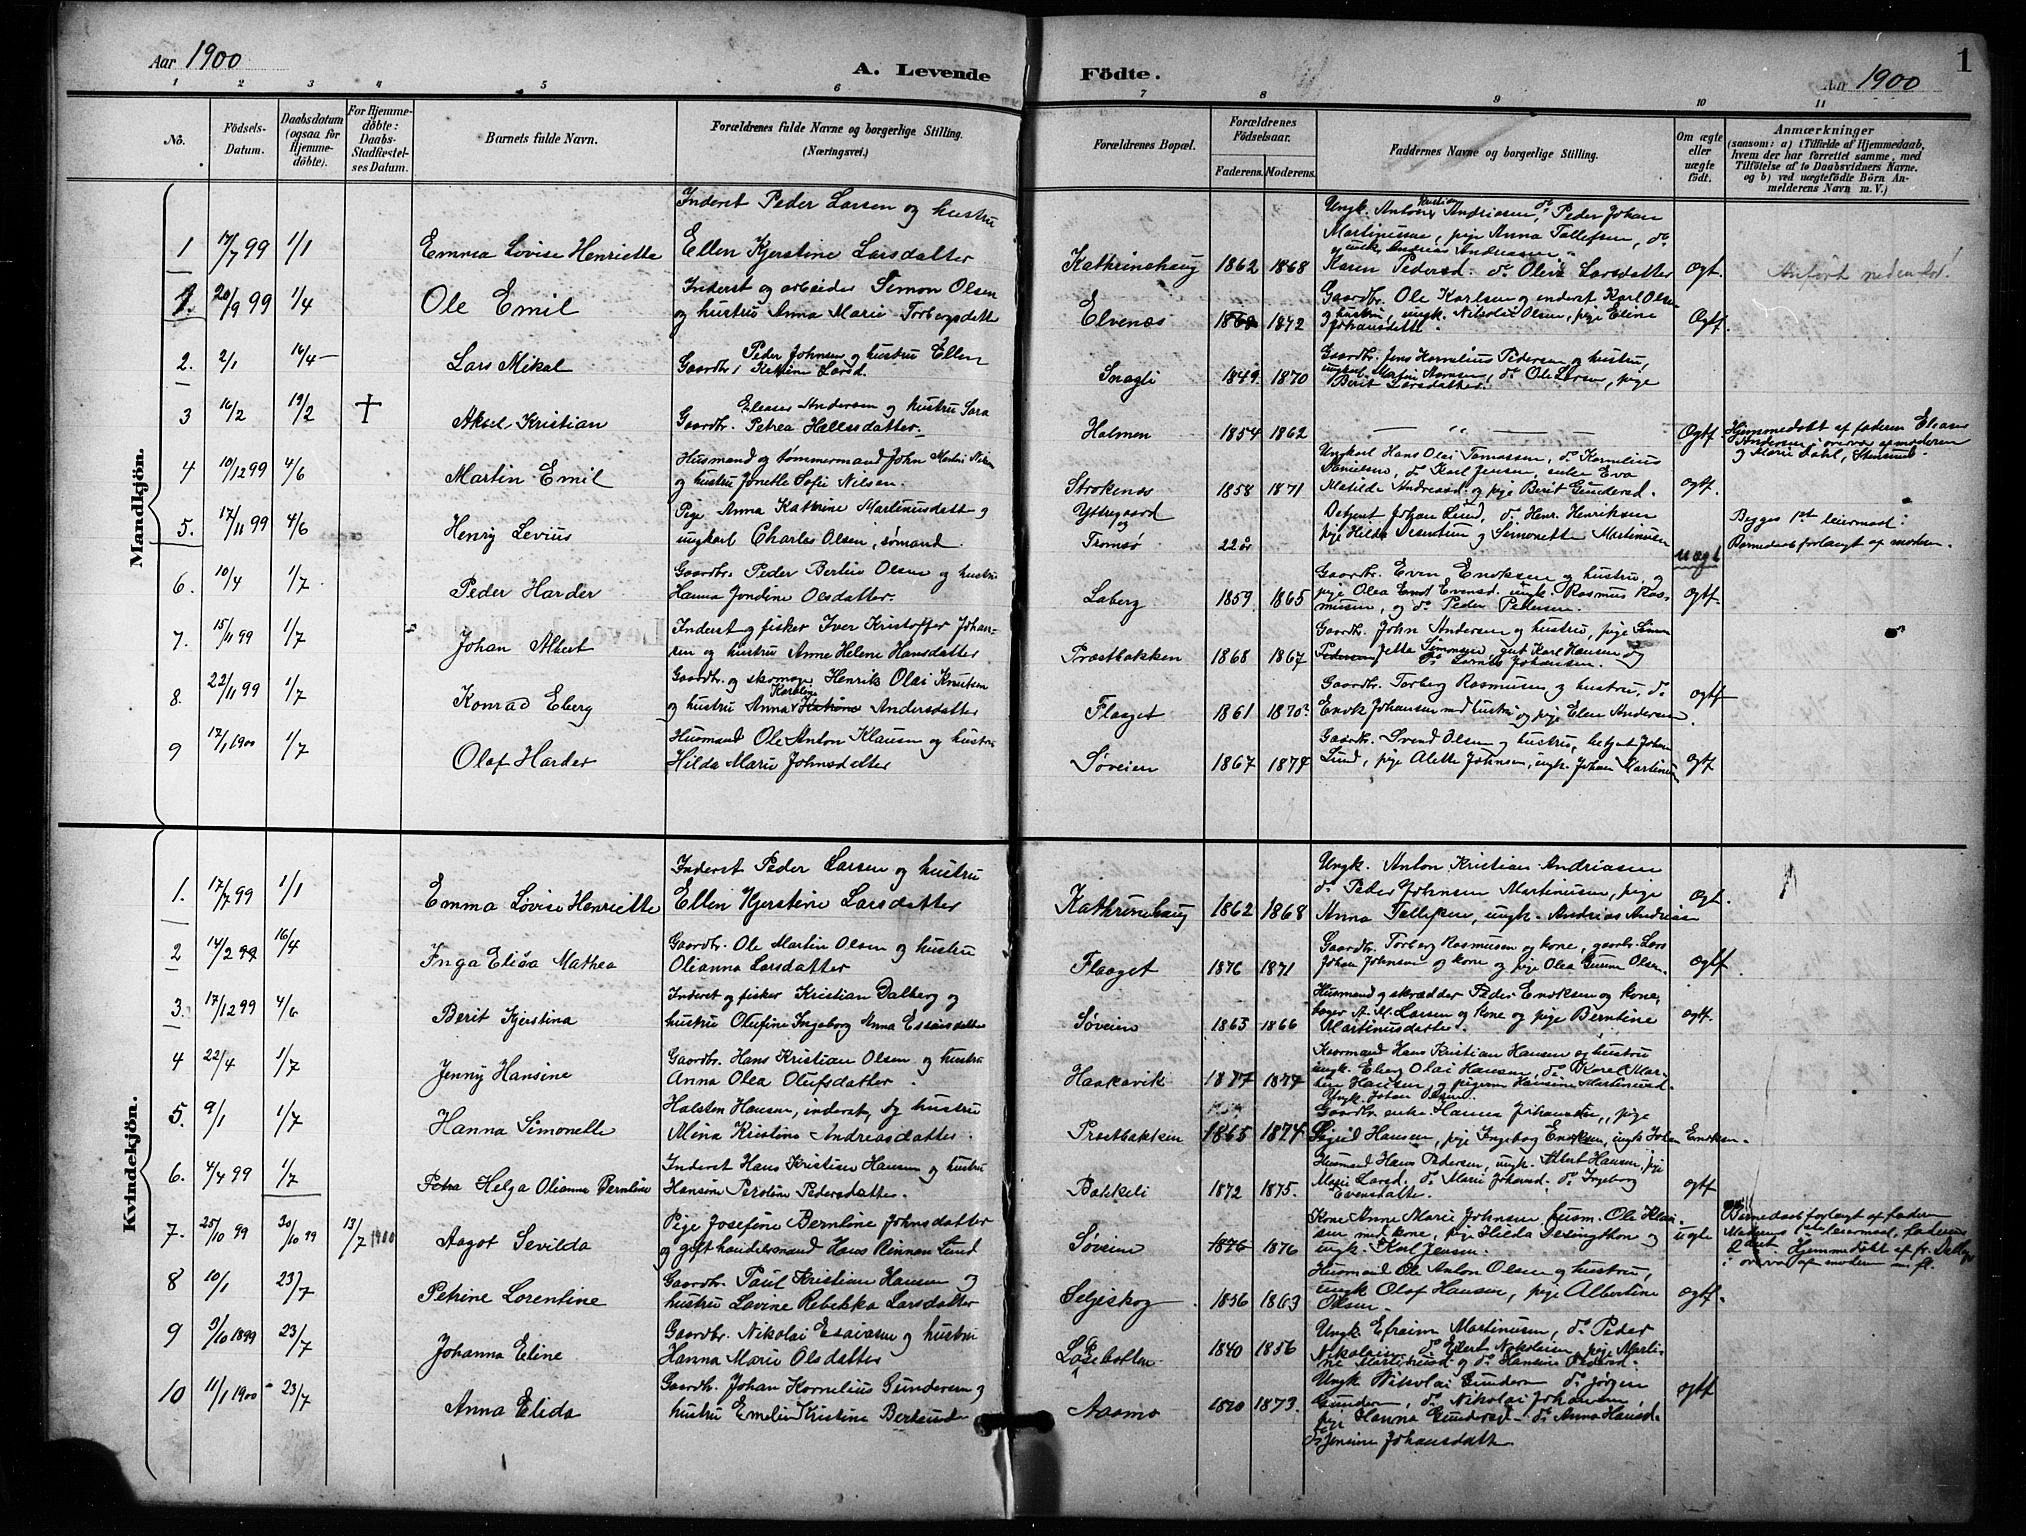 Aar 1900
A. Levende Födte.
Aar 1900
1
1 2 3 4 5 6 7 8 9 10 11
No.
Födsels-Datum.
Daabsdatum (ogsaa for Hjemmedöbte).
For Hjemmedöbte: Daabs-Stadfæstelses Datum.
Barnets fulde Navn.
Forældrenes fulde Navne og borgerlige Stilling. (Næringsvei.)
Forældrenes Bopæl.
Forældrenes Födselsaar.
Faderens. Moderens.
Faddernes Navne og borgerlige Stilling.
Om ægte eller uægte födt.
Anmærkninger
(saasom: a) i Tilfælde af Hjemmedaab, hvem der har forrettet samme, med Tilföielse af to Daabsvidners Navne, og b) ved uægtefödte Börn Anmelderens Navn m. V.)
Mandkjön.
Inderst Peder Larsen og hustru
1 17/7 99 1/1 Emma Lovise Henriette Ellen Kjerstine Larsdatter Kathrinehaug 1862 1868 Ungk. Anton Kristian Andriasen, do Peder Johan
Martinussen, pige Anna Tollefsen, do
Karen Pedersd. do Oline Larsdatter Ægt. Anført nedenfor!
Inderst og arbeider Simon Olsen
1. 20/9 99 1/4 Ole Emil og hustru Anna Marie Torbergsdatter Elvenæs 1872 Gaardbr. Ole Karlsen og inderst Karl Olsen
og hustru, ungk. Nikolai Olsen, pige Eline
Johansdatter. Ægtf.
Peder Johnsen og hustru Ellen
2. 2/1 16/4 Lars Mikal Gaardbr. Katrine Larsd. 1849 1870 Gaardbr. Jens Kornelius Pedersen og hustru,
do Ole Larsen, pige
Berit Larsdatter.
Eleaser Andersen og hustru Sara
3 16/2 19/2 Aksel Kristian Gaardbr. Petrea Holmen 1854 1862 — " — Ægtf. Hjemmedøbt af faderen Eleaser
Andersen i overvær af moderen
og Marie Dahl,
Husmand og tømmermand John Martin
4 10/12 99 4/6 Martin Emil og hustru Jonette Sofie Nilsen. Strokenæs 1858 1871 Ungkarl Hans Olai Tomassen, do Kornelius
Danielsen, do Karl Jensen, enke Eva
Matilde Andreasd. og pige Berit Gundersd. Ægtf.
Pige Anna Katrine Martinusdatt. og
5. 17/11 99 4/6 Henry Levius ungkarl Charles Olsen, sømand. Yttregaard
og
Tromsø 22 år Betjent Johan Lund, do Henr. Henriksen
pige Hilda og Simonette Martinusen uægt Begges 1ste leiermaal.
Barnedaab forlangt af moderen.
Gaardbr. Peder Berlin Olsen og hustru
6. 10/4 1/7 Peder Harder Hanna Jondine Olsdatter. Laberg 1859 1865 Gaardbr. Even Enoksen og hustru, og
pige Olea Evensd. ungk. Rasmus Rasmusen,
og do Peder Pettersen. Ægtf.
Inderst og fisker Iver Kristoffer Johansen
7. 15/11 99 1/7 Johan Albert og hustru Anne Helene Hansdatter Præstbakken 1868 1867 Gaardbr. John Andersen og hustru, pige
gut Karl Hansen og
do Johansen.
Gaardbr. og skomager Henrik Olai Knutsen
8. 22/11 99 1/7 Konrad Eberg og hustru Anna Karoline Andersdatter Flaaget 1861 1870? Gaardbr. Torberg Rasmusen og hustru, do
Enok Johansen med hustru og pige Elen Andersen. Ægtf
Husmand Ole Anton Klausen og hustru
9 17/1 1900 1/7 Olaf Harder Hilda Marie Johnsdatter Søveien 1867 1874 Gaardbr. Svend Olsen og hustru, betjent Johan
Lund, pige Alette Johnsen, ungk. Johan Martinusen Ægtf
Kvindekjön.
Inderst Peder Larsen og hustru
1. 17/7 99 1/1 Emma Lovise Henriette Ellen Kjerstine Larsdatter Kathrinehaug 1862 1868 Ungk. Anton Kristian Andriasen
do Peder Johnsen Martinusen, pige
Anna Tollefsen, ungk. Andrias Andriasen Ægt.
Gaardbr. Ole Martin Olsen og hustru
2 14/2 99 16/4 Inga Elisa Mathea Olianna Larsdatter Flaaget 1876 1871 Gaardbr. Torberg Rasmusen og kone, gaardbr. Lars
Johan Johnsen og kone og pige Olea Olsen. Ægtf.
Inderst og fisker Kristian Dalberg og
3. 17/12 99 4/6 Berit Kjerstina hustru Olufine Ingeborg Anna Esaiasdatter Søveien 1863 1866 Husmand og skrædder Peder Enoksen og kone,
A. M. Larsen og kone og pige Berntine
Martinusdatter. Ægtf.
Gaardbr. Hans Kristian Olsen og hustru
4 22/4 1/7 Jenny Hansine Anna Olea Olufsdatter. Haakavik 1877 1877 Kaarmand Hans Kristian Hansen og hustru
ungk. Eberg Olai Hansen, do Karel Martin
Hansen, og pigerne Hansine Martinusd.
Ungk. Johan Olsen.
Halsten Hansen, inderst, og hustru
5. 9/1 1/7 Hanna Simonette Mina Kristine Andreasdatter. Præstbakken 1865 1874 Gaardbr. enke Hanna Johansdtr., pige
Sigrid Hansen, pige Ingebog Enoksen, ungk. Johan Enoksen.
Inderst Hans Kristian Hansen og hustru
6. 4/4 99 1/7 Petra Helga Olianna Berntine Hansine Peroline Pedersdatter. Bakkeli 1872 1875. Husmand Hans Pedersen, ungk. Albert Hansen, pige
Marie Larsd. do Marie Johansd. do Ingeborg
Evensdatter. Ægtf
Pige Josefine Berntine Johnsdatter
7. 25/10 99 30/10 99 13/7 1900 Aagot Sevilda og gift handelsmand Hans Rinnan Lund Søveien 1876 1876 Kone Anne Marie Johnsen husm. Ole Klausen
med kone, pige Hilda og
ungk. Karl Jensen. uægte Barnedaab forlangt af faderen
Moderens 1ste leiermaal, faderens
2det. Hjemmedøbt af fr.
i overvær af moderen m. fl.
Gaardbr. Paul Kristian Hansen og
8 10/1 23/7 Petrine Lorentine hustru Lavine Rebekka Larsdatter Seljeskog 1856 1863 Husmand Ole Anton Olsen og hustru,
ungk Olaf Hansen, pige Albertine
Olsen. Ægtf.
Gaardbr. Nikolai Esaiasen og hustru
9 9/10 1899 23/7 Johanna Eline Hanna Marie Olsdatter 1840 1856 Ungk. Efraim Martinusen, do Peder
Nikolaisen, do Edert Nikolaisen, pige Martine
Martinusd og do Hansine Pedersd.
Gaardbr. Johan Kornelius Gundersen og
10 11/1 1900 23/7 Anna Elida hustru Emelie Kristine Bertsdatter 1870 1873. Ungk Nikolai Gundersen do Jørgen
Gundersen, do Nikolai Johansen,
pige Hanna Gundersd. do Anna Hansd.
Jensine Johansdatter Ægtf